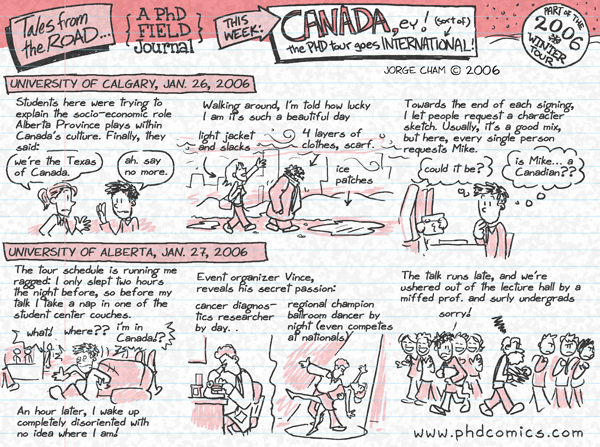 Tales from the ROAD...
{A PhD FIELD Journal}
THIS WEEK:
CANADA, ey! (sort of)
the PHD tour goes INTERNATIONAL!
PART OF THE
2006
WINTER
TOUR
JORGE CHAM © 2006
UNIVERSITY OF CALGARY, JAN. 26, 2006
Students here were trying to
explain the socio-economic role
Alberta Province plays within
Canada's culture. Finally, they
said:
we're the Texas
of Canada.
ah. say
no more.
Walking around, I'm told how lucky
I am it's such a beautiful day
light jacket
and slacks
4 layers of
clothes, scarf.
ice
patches
Towards the end of each signing,
I let people request a character
sketch. Usually, it's a good mix,
but here, every single person
requests Mike.
could it be?
is Mike... a
Canadian??
UNIVERSITY OF ALBERTA, JAN. 27, 2006
The tour schedule is running me
ragged: I only slept two hours
the night before, so before my
talk I take a nap in one of the
student center couches.
what!
where??
i'm in
Canada!?
An hour later, I wake up
completely disoriented with
no idea where I am!
Event organizer Vince,
reveals his secret passion:
cancer diagnos-
tics researcher
by day. .
regional champion
ballroom dancer by
night (even competes
at nationals)
The talk runs late, and we're
ushered out of the lecture hall by a
miffed prof. and surly undergrads
sorry!
www.phdcomics.com